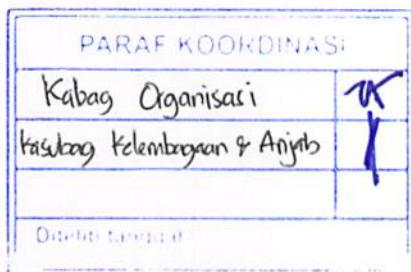 PARAF KOORDINASI
Kabag Organisasi
Kasubag Kelembagaan & Anjab
Diteliti tanggal